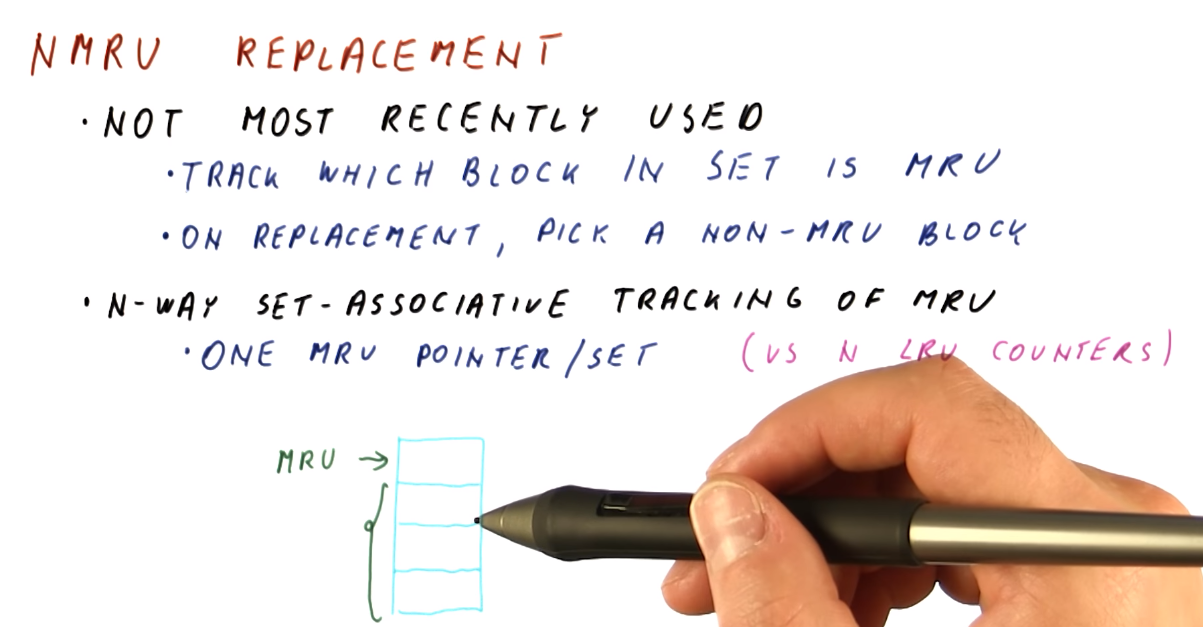 NMRU REPLACEMENT
· NOT MOST RECENTLY USED
· TRACK WHICH BLOCK IN SET IS MRU
· ON REPLACEMENT, PICK A NON-MRU BLOCK
· N-WAY SET-ASSOCIATIVE TRACKING OF MRU
· ONE MRU POINTER/SET (VS N LRU COUNTERS)
MRU →